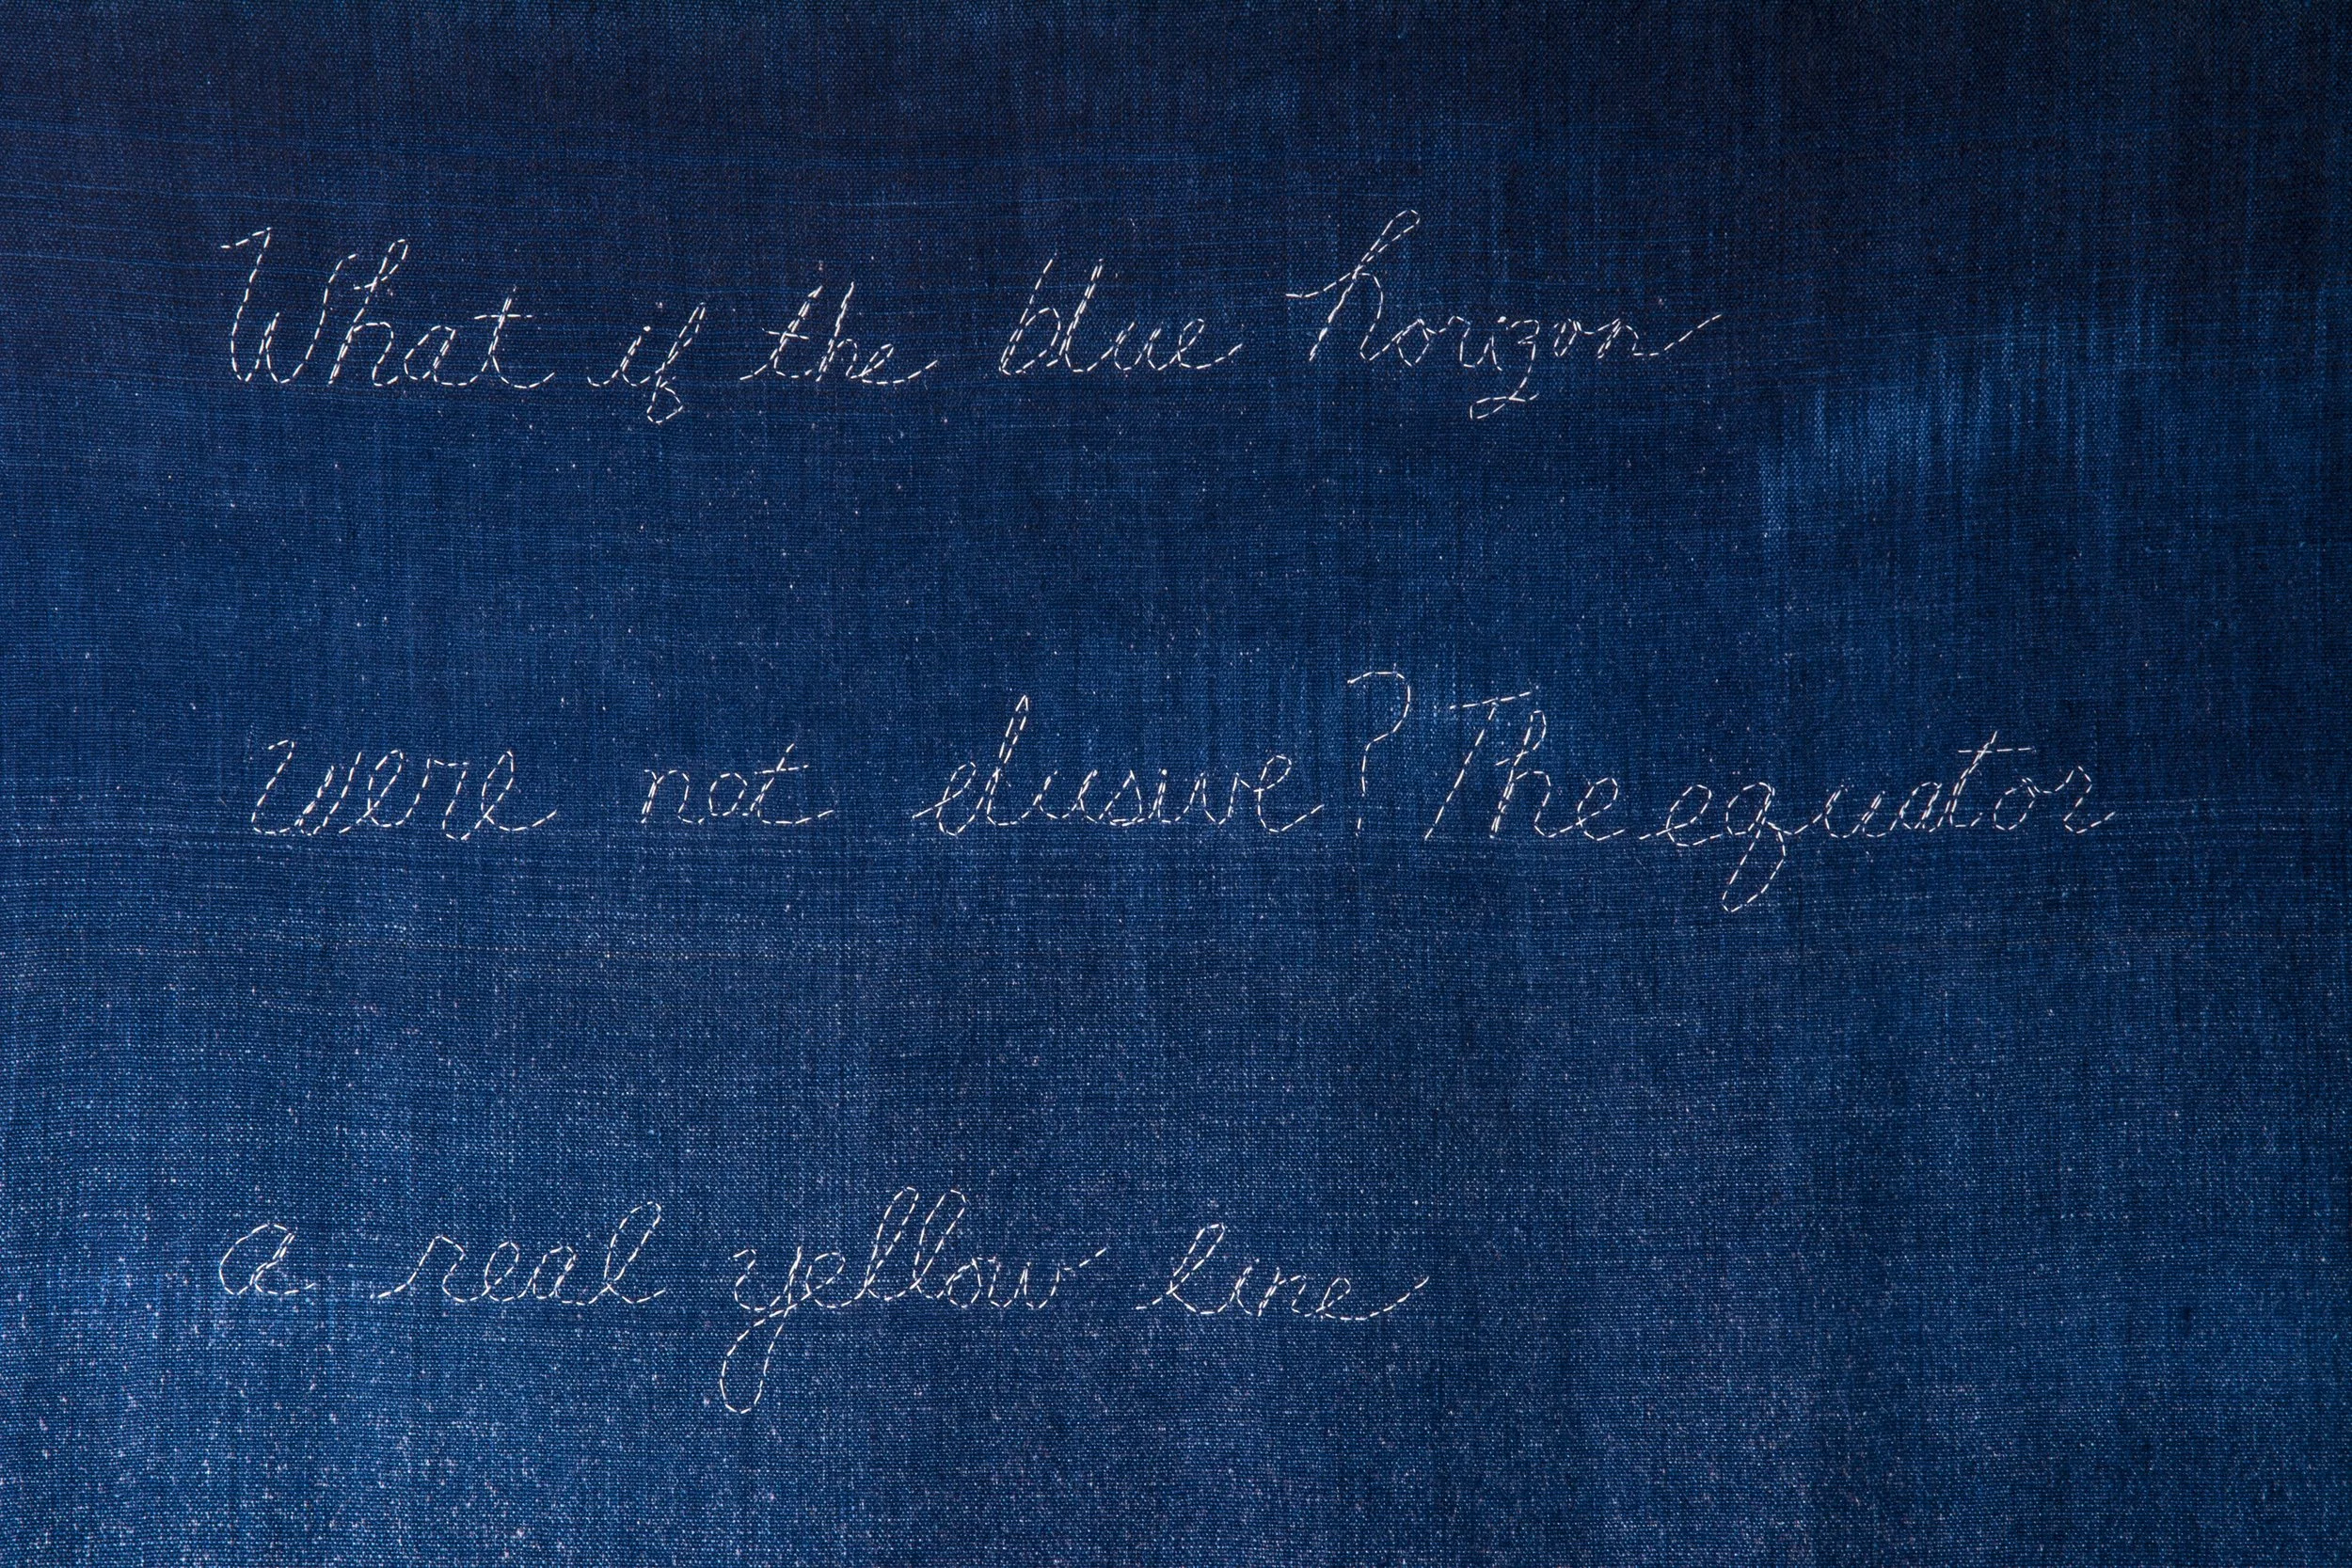 What if the blue horizon
were not elusive? The equator
a real yellow line